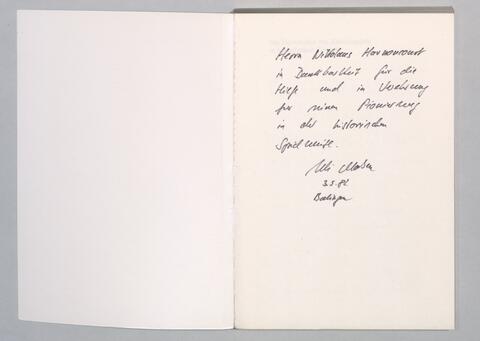 Herrn Nikolaus Harnoncourt
in Dankbarkeit für die
Hilfe und in Verehrung
für seinen Pionierweg
in der historischen
Spielweise.
3.5.82